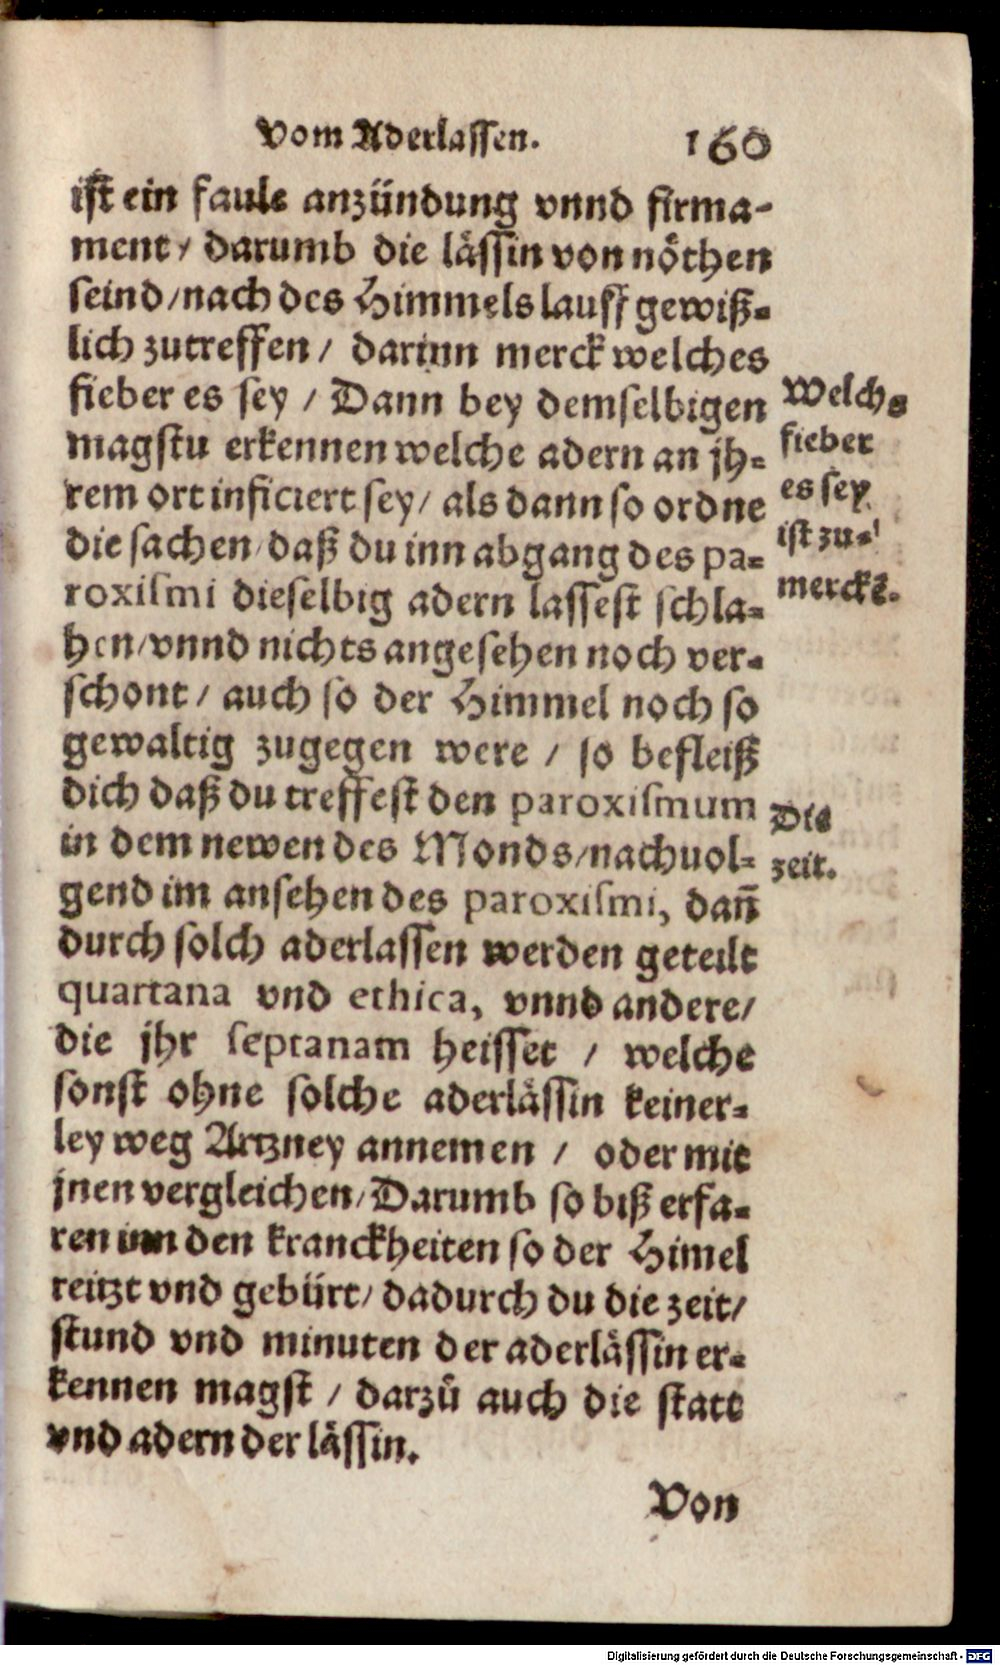 Vom Aderlassen. 160
ist ein faule anzündung vnnd firma-
ment / darumb die lässin von nöthen
seind / nach des Himmels lauff gewiß-
lich zutreffen / darinn merck welches
fieber es sey / Dann bey demselbigen
magstu erkennen welche adern an jh-
rem ort inficiert sey / als dann so ordne
die sachen / daß du inn abgang des pa-
roxismi dieselbig adern lassest schla-
hen / vnnd nichts angesehen noch ver-
schont / auch so der Himmel noch so
gewaltig zugegen were / so befleiß
dich daß du treffest den paroxismum
in dem newen des Monds / nachuol-
gend im ansehen des paroxismi, dañ
durch solch aderlassen werden geteilt
quartana vnd ethica, vnnd andere /
die jhr septanam heisset / welche
sonst ohne solche aderlässin keiner-
ley weg Artzney annemen / oder mit
jnen vergleichen / Darumb so biß erfa-
ren inn den kranckheiten so der Himel
reitzt vnd gebürt / dadurch du die zeit /
stund vnd minuten der aderlässin er-
kennen magst / darzů auch die statt
vnd adern der lässin.
Von
Welchs
fieber
es sey
ist zu-
merckē.
Die
zeit.
Digitalisierung gefördert durch die Deutsche Forschungsgemeinschaft - DFG